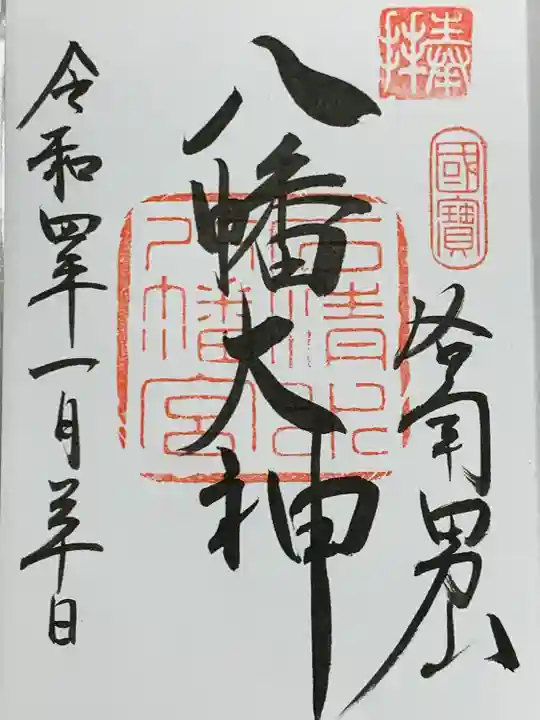 奉拝
國寶
洛南男山
八幡大神
石清水
八幡宮
令和四年一月日